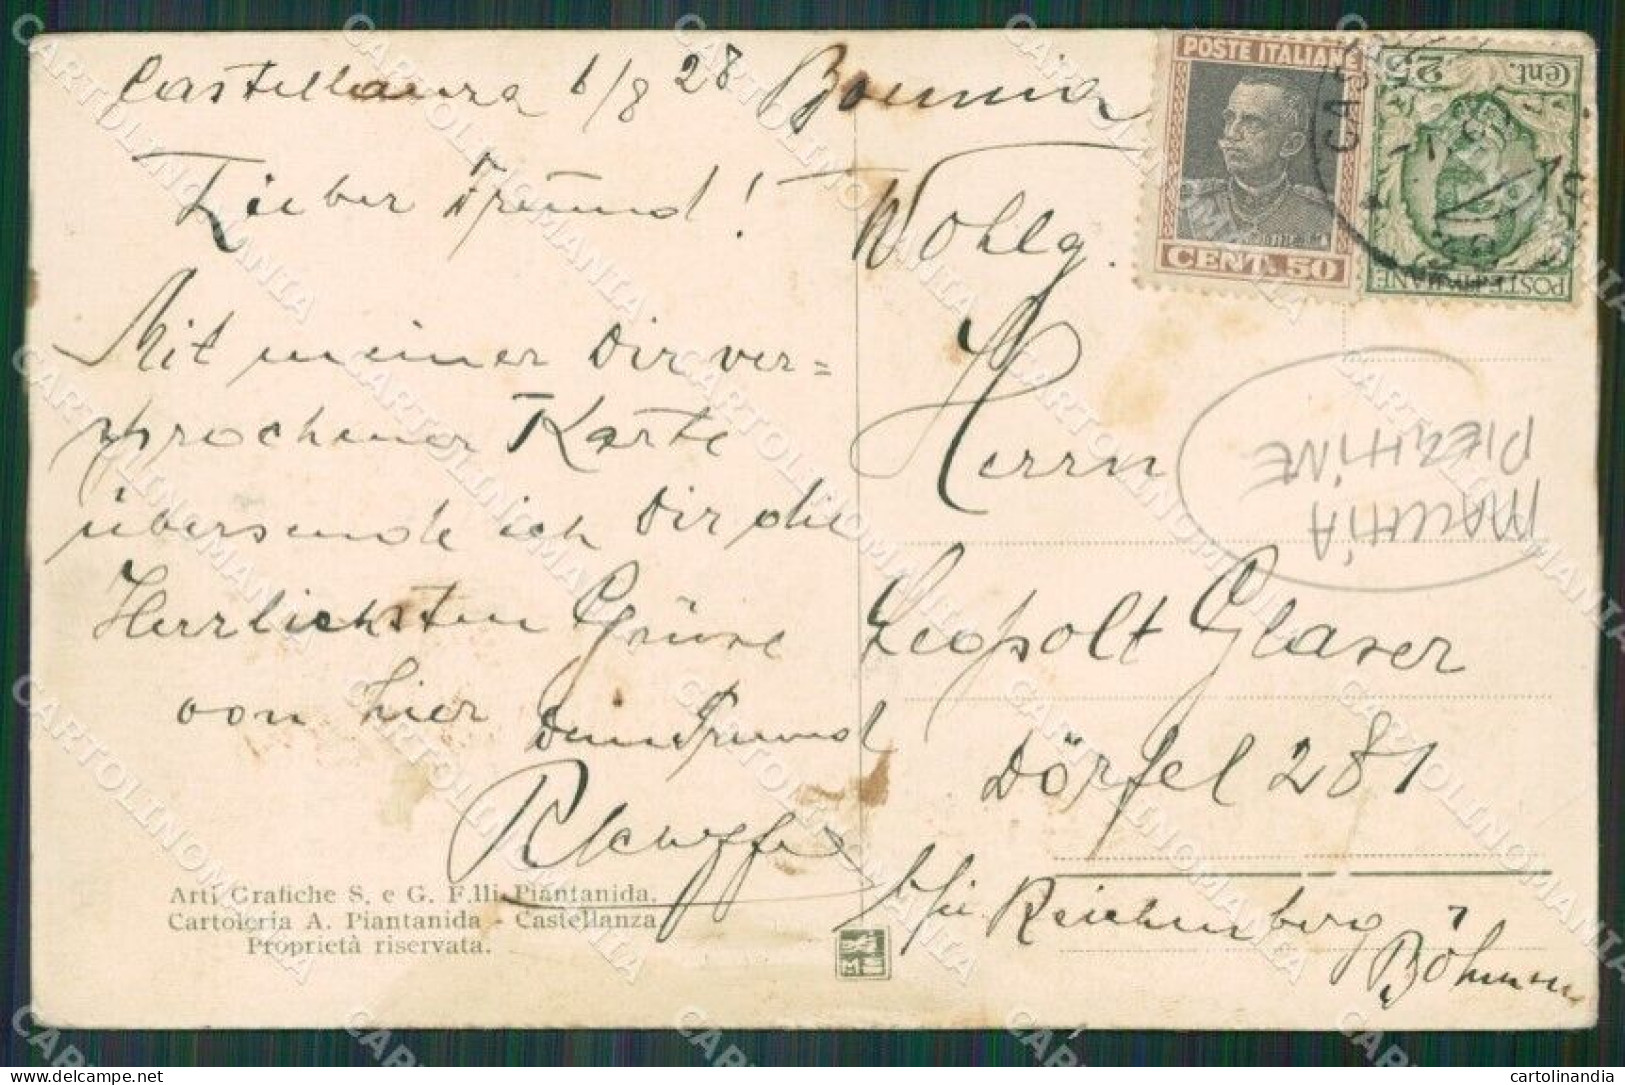 Castellanza 6/8 28 Boemia
Lieber Freund!
Mit meiner Dir ver=
sprochener Karte
übersende ich Dir die
Herrlichsten Grüsse
von hier Dein Freund
Arti Grafiche S. e G. F.lli Piantanida.
Cartoleria A. Piantanida - Castellanza
Proprietà riservata.
POSTE ITALIANE
CENT. 50
Cent. 25
POSTE ITALIANE
Wohlg.
Herrn
MALCHIA
Leopolt Glaser
Dörfel 281
b/ Reichenberg
Böhmen
CARTOLINOMANIA
cartolinandia